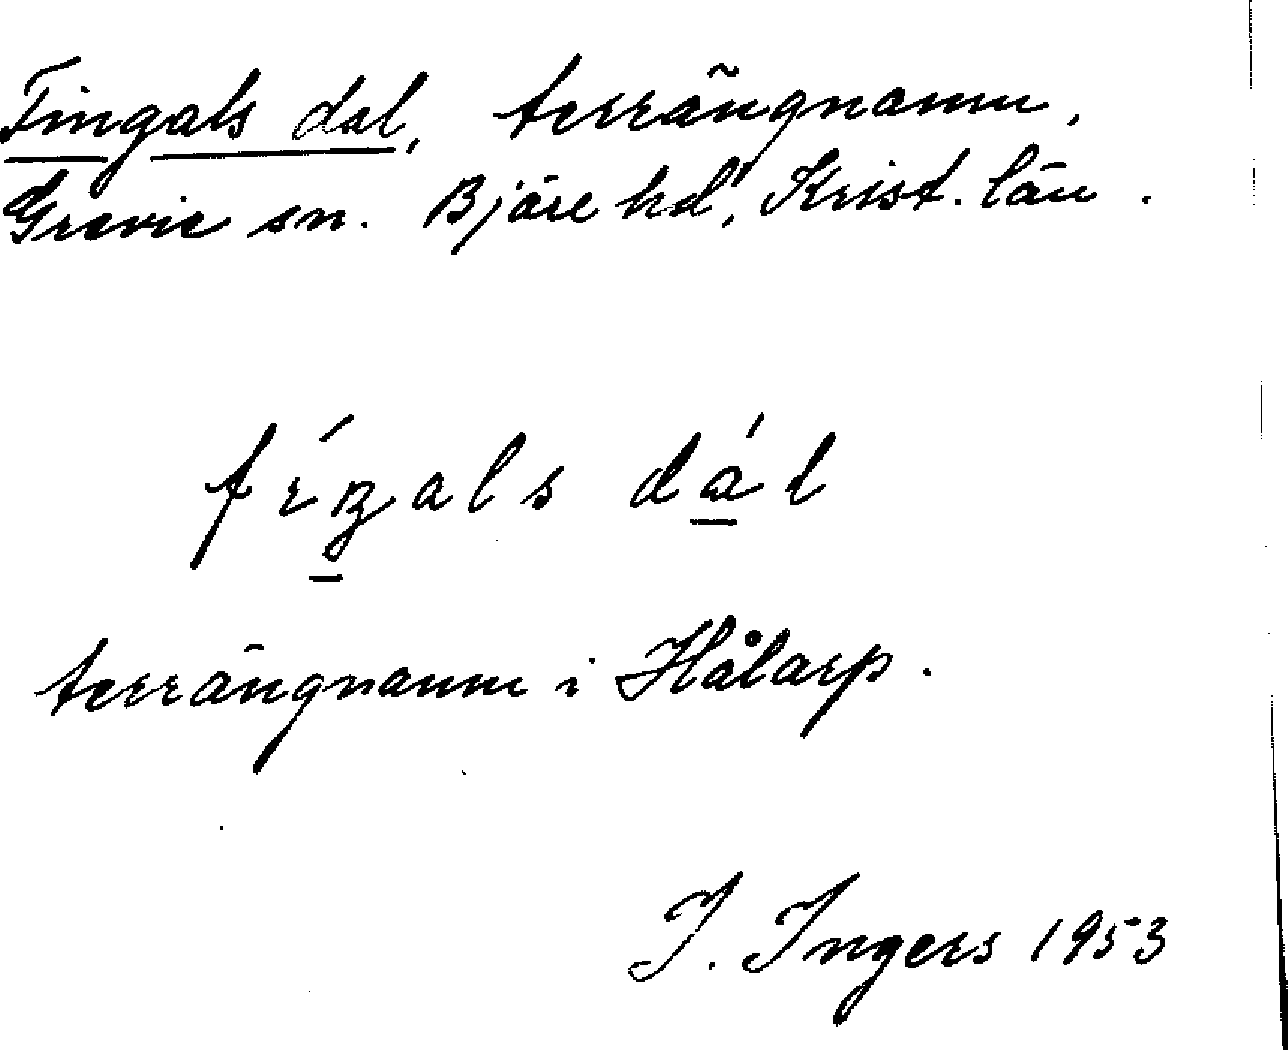 Fingals dal, terrängnamn,
Grevie sn. Bjäre hd, Krist. län.
fíŋals dál
terrängnamn i Hålarp.
I. Ingers 1953